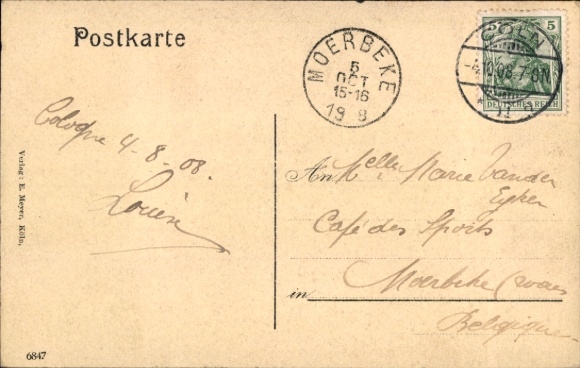 Postkarte
MOERBEKE
5
OCT
15-16
19 8
5 5
CÖLN
-4.10.08.7-8N
DEUTSCHES REICH
Cologne 4-8-08.
Louise
Verlag: E. Meyer, Köln,
An Melle Marie Vander
Eyken
Café des Sports
in Moerbeke (Waes
Belgique
6847